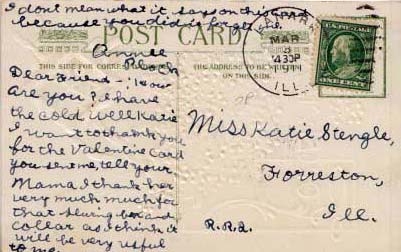 I dont mean what it says on this card
because you did is forget me
POST CARD
THIS SIDE FOR CORRESPONDENCE
THE ADDRESS TO BE WRITTEN ON THIS SIDE
Annie
Dear Friend: How
are you? I have
the cold well Katie
I want to thank you
for the Valentine Card
you sent me, tell your
Mama I thank her
very much much for
that and
collar as I think it
will be very usful
to me.
MAR
8
430P
ILL.
Miss Katie Stengle,
Forreston,
Ill.
R.R.2.